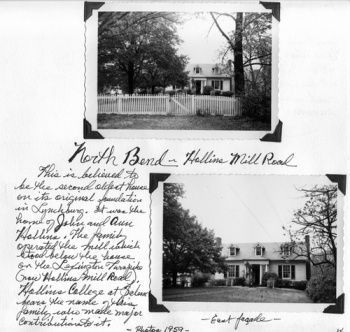 North Bend ~ Hollins Mill Road
This is believed to
be the second oldest house
on its original foundation
in Lynchburg. It was the
home of John and Ann
Hollins. The family
operated the mill which
stood below the house
on the Lexington Turnpike
(now Hollins Mill Road).
Hollins College at Salem
bears the name of this
family, who made major
contributions to it.
~ Photos 1959 ~
~ East façade ~